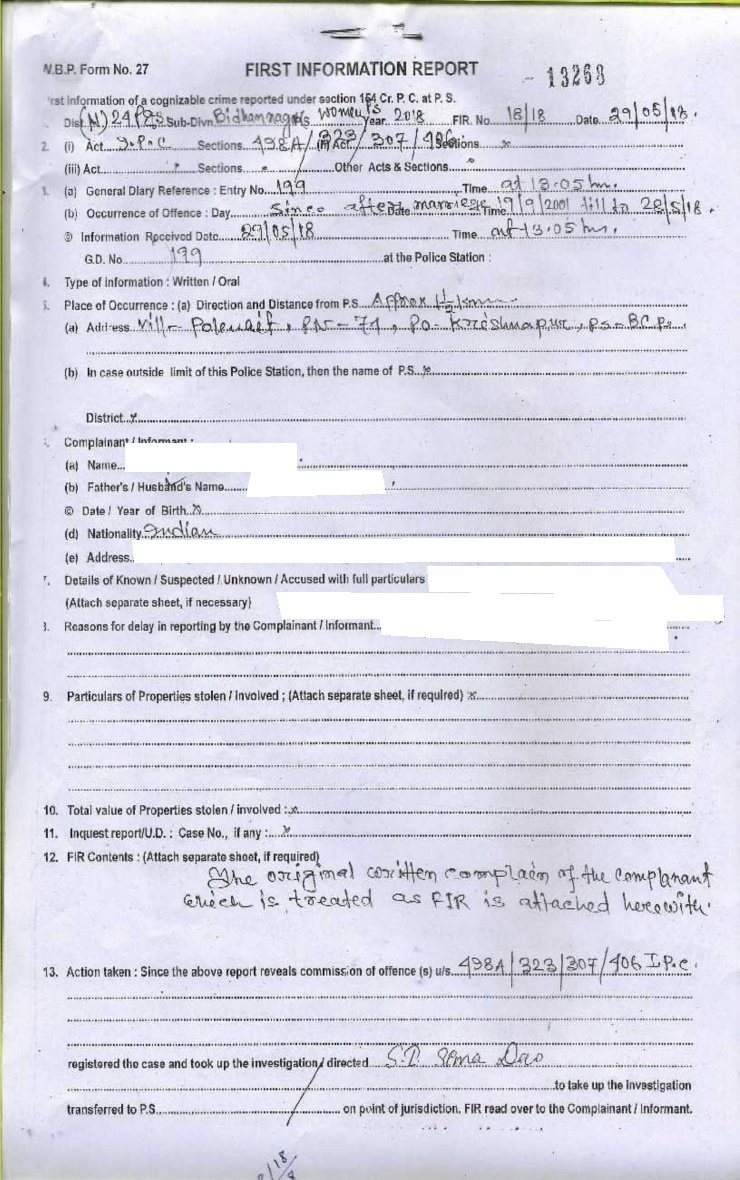 W.B.P. Form No. 27 FIRST INFORMATION REPORT - 13263
rst Information of a cognizable crime reported under section 154 Cr. P. C. at P. S.
Dist (N) 24 Pgs Sub-Divn. Bidhannagar P.S. Women PS Year 2018 FIR. No 18/18 Date 29/05/18.
2. (i) Act I.P.C Sections 498A/323/307/406 (ii) Act Sections x
(iii) Act Sections Other Acts & Sections
3. (a) General Diary Reference : Entry No. 199 Time at 13.05 hrs.
(b) Occurrence of Offence : Day since after marriage Date Time 19/9/2001 till to 28/5/18.
© Information Received Date 29/05/18 Time at 13.05 hrs.
G.D. No 199 at the Police Station :
4. Type of Information : Written / Oral
5. Place of Occurrence : (a) Direction and Distance from P.S. Approx 1½ km
(a) Address Vill- , PN-71, Po- Krishnapur, ps- BCPS.
(b) In case outside limit of this Police Station, then the name of P.S. x
District x
Complainant / Informant :
(a) Name
(b) Father's / Husband's Name
© Date / Year of Birth x
(d) Nationality Indian
(e) Address
7. Details of Known / Suspected / Unknown / Accused with full particulars
(Attach separate sheet, if necessary)
Reasons for delay in reporting by the Complainant / Informant
9. Particulars of Properties stolen / involved ; (Attach separate sheet, if required) x
10. Total value of Properties stolen / involved : x
11. Inquest report/U.D. : Case No., if any : x
12. FIR Contents : (Attach separate sheet, if required)
The original written complain of the complanant
which is treated as FIR is attached herewith.
13. Action taken : Since the above report reveals commission of offence (s) u/s. 498A/323/307/406 I.P.C.
registered the case and took up the investigation / directed S.I. Das
to take up the investigation
transferred to P.S. on point of jurisdiction. FIR read over to the Complainant / Informant.